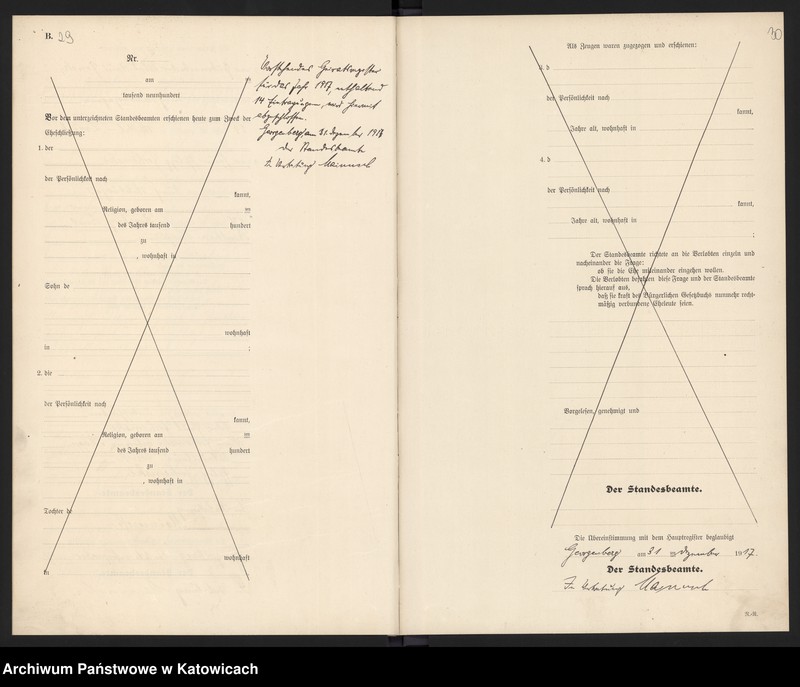 B.
29
Nr.
am
tausend neunhundert
Vor dem unterzeichneten Standesbeamten erschienen heute zum Zweck der
Eheschließung:
1. der
der Persönlichkeit nach
kannt,
Religion, geboren am
des Jahres tausend hundert
zu
, wohnhaft in
Sohn de
wohnhaft
in ;
2. die
der Persönlichkeit nach
kannt,
Religion, geboren am
des Jahres tausend hundert
zu
, wohnhaft in
Tochter de
wohnhaft
in
Vorstehendes Heiratsregister
für das Jahr 1917, enthaltend
14 Eintragungen, wird hiermit
abgeschlossen.
Georgenberg am 31. Dezember 1917
Der Standesbeamte
In Vertretung
30
Als Zeugen waren zugezogen und erschienen:
3. d
der Persönlichkeit nach
kannt,
Jahre alt, wohnhaft in
4. d
der Persönlichkeit nach
kannt,
Jahre alt, wohnhaft in
;
Der Standesbeamte richtete an die Verlobten einzeln und
nacheinander die Frage:
ob sie die Ehe miteinander eingehen wollen.
Die Verlobten bejahten diese Frage und der Standesbeamte
sprach hierauf aus,
daß sie kraft des Bürgerlichen Gesetzbuchs nunmehr recht-
mäßig verbundene Eheleute seien.
Vorgelesen, genehmigt und
Der Standesbeamte.
Die Übereinstimmung mit dem Hauptregister beglaubigt
Georgenberg am 31 Dezember 1917.
Der Standesbeamte.
In Vertretung
Archiwum Państwowe w Katowicach